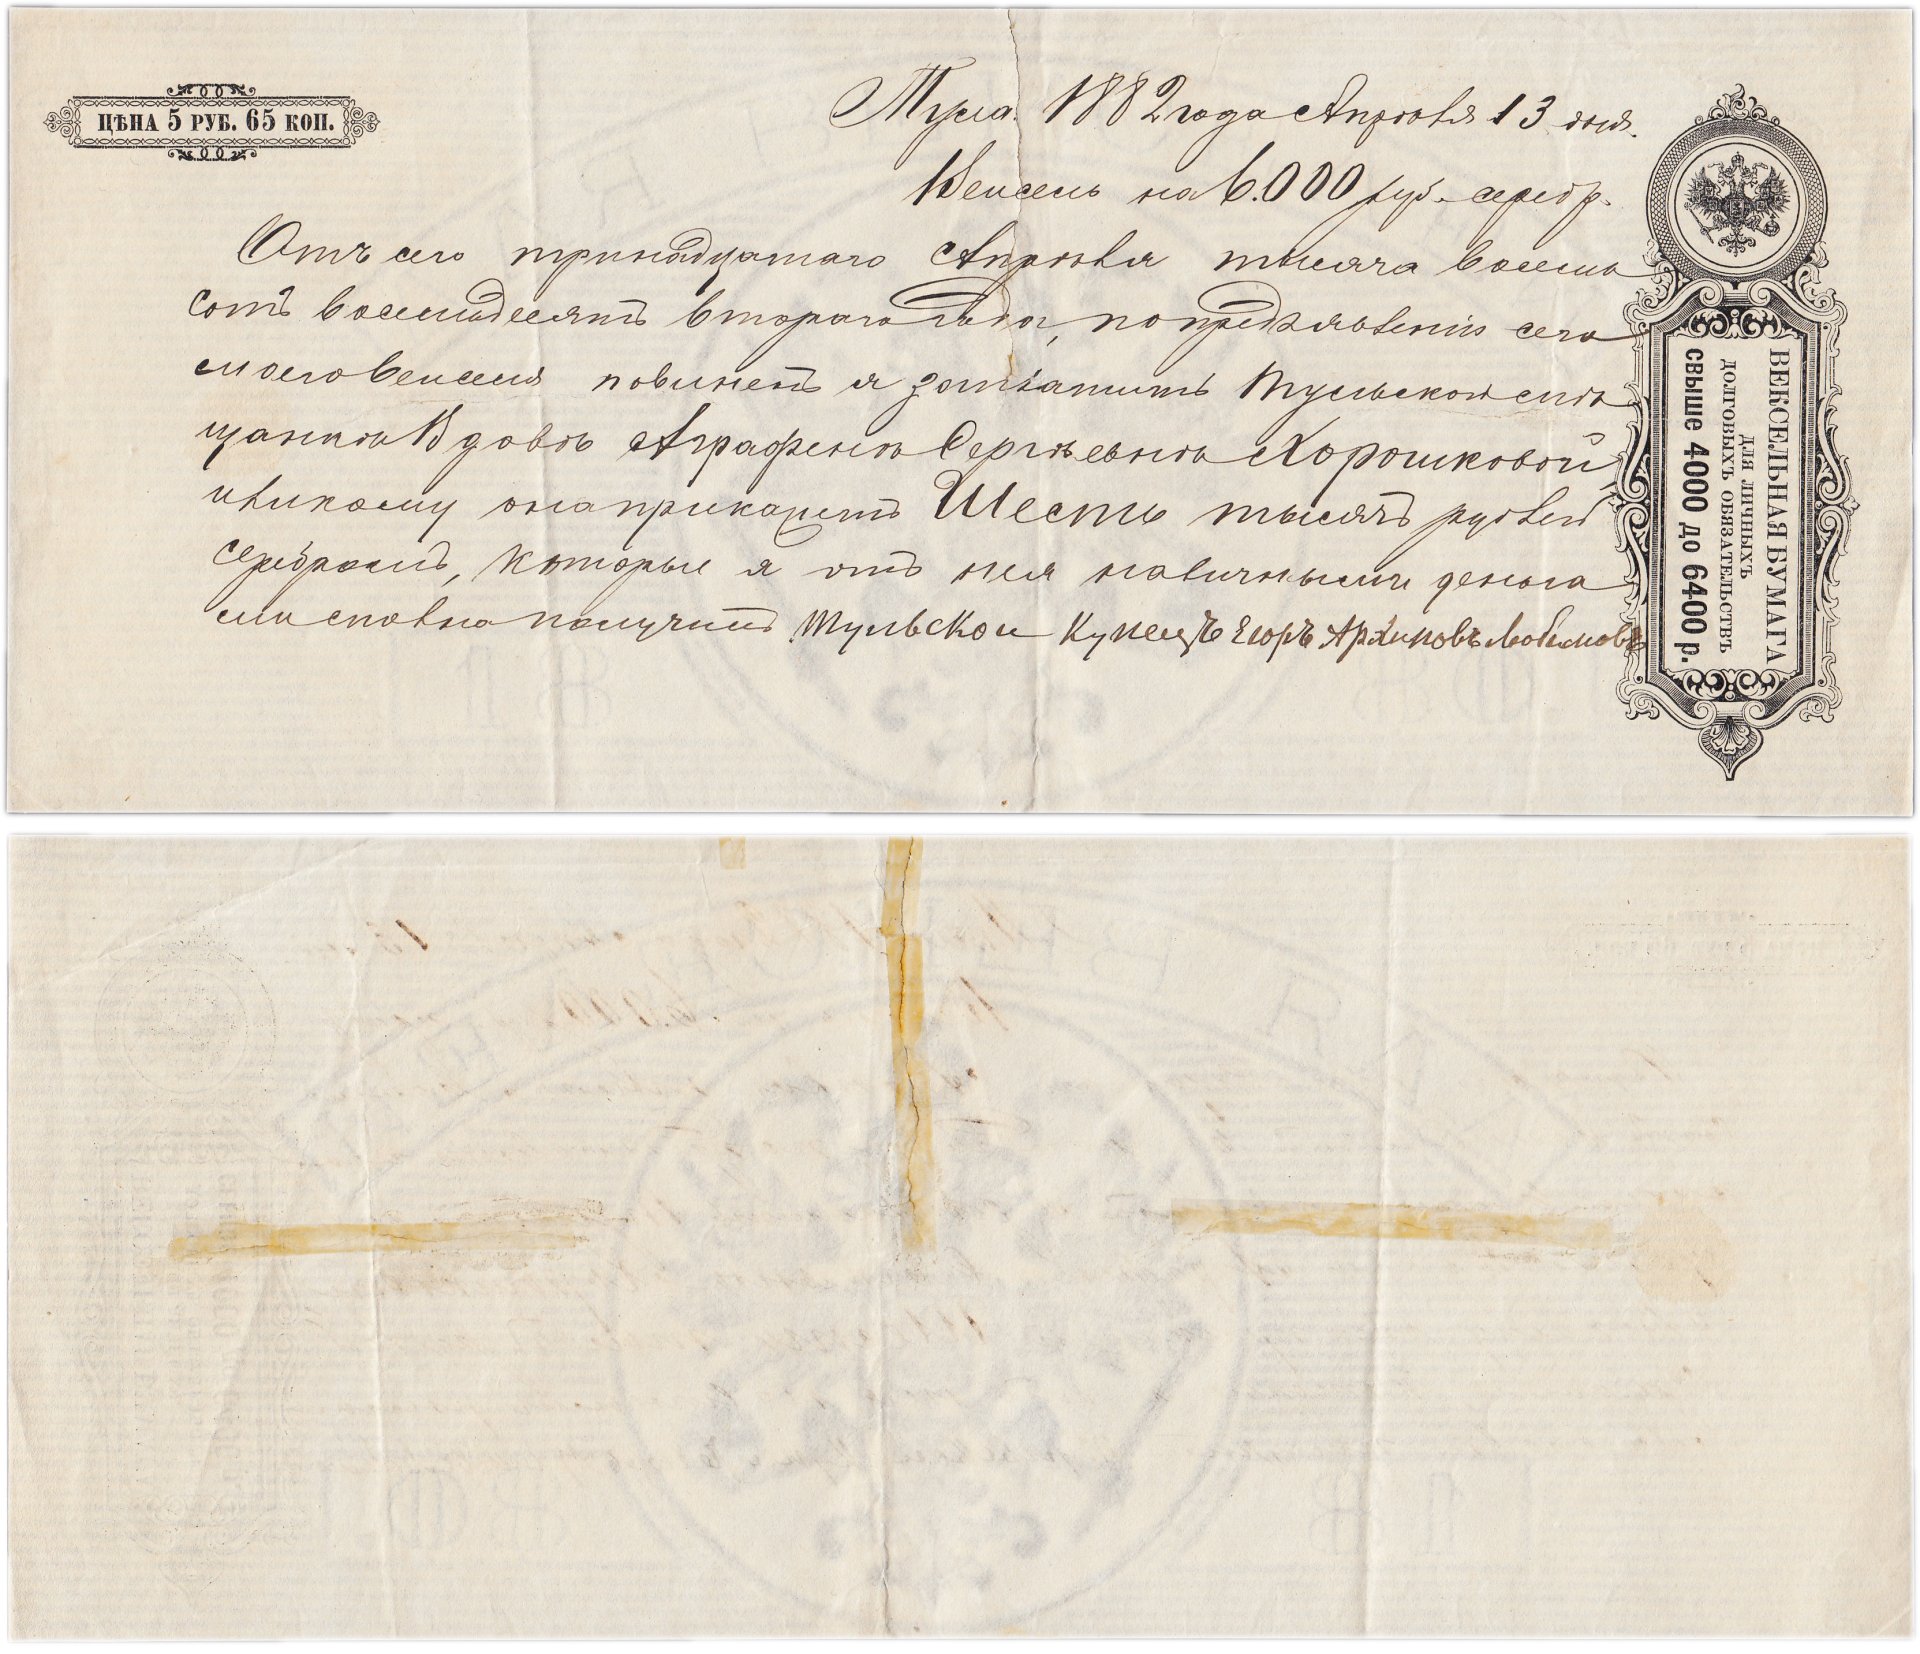 ЦѢНА 5 РУБ. 65 КОП.
Тула. 1882 года Апрѣля 13 дня.
Вексель на 6.000 руб. серебр.
Отъ сего тринадцатаго Апрѣля тысяча восемь
сотъ восемьдесятъ втораго года, по предъявленію сего
моего векселя повиненъ я заплатить Тульской мѣ
щанкѣ Вдовѣ Аграфенѣ Сергѣевнѣ Хорошковой,
или кому она прикажетъ Шесть тысячъ рублей
серебромъ, которые я отъ нея наличными деньга
ми сполна получилъ Тульской Купецъ Егоръ Архиповъ Любимовъ
ВЕКСЕЛЬНАЯ БУМАГА
ДЛЯ ЛИЧНЫХЪ
ДОЛГОВЫХЪ ОБЯЗАТЕЛЬСТВЪ
СВЫШЕ 4000 ДО 6400 Р.